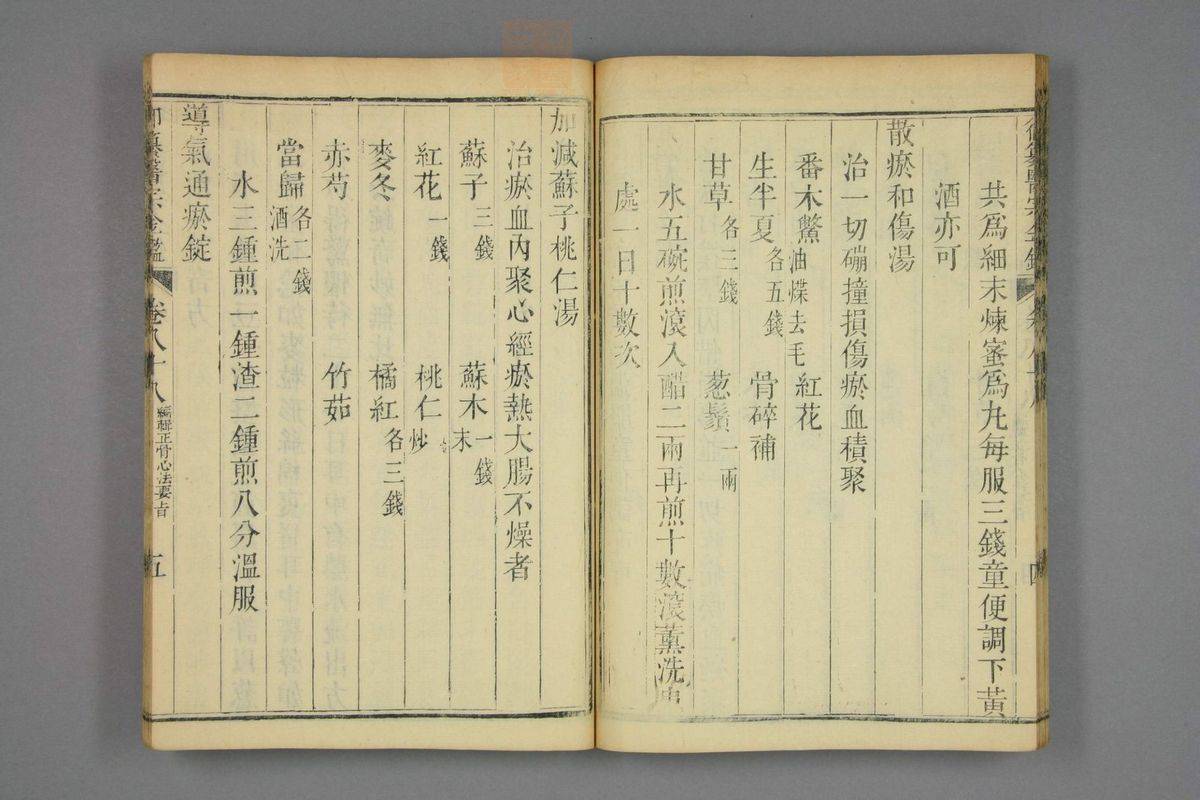 共爲細末煉蜜爲丸每服三錢童便調下黃
酒亦可
散瘀和傷湯
治一切磞撞損傷瘀血積聚
番木鱉油煠去毛 紅花
生半夏各五錢 骨碎補
甘草各三錢 葱鬚一兩
水五碗煎滾入醋二兩再煎十數滾薰洗患
處一日十數次
加減蘇子桃仁湯
治瘀血內聚心經瘀熱大腸不燥者
蘇子三錢 蘇木末一錢
紅花一錢 桃仁炒
麥冬 橘紅各三錢
赤芍 竹茹
當歸酒洗各二錢
水三鍾煎一鍾渣二鍾煎八分溫服
導氣通瘀錠
御纂醫宗金鑑 卷八十八 編輯正骨心法要旨 五